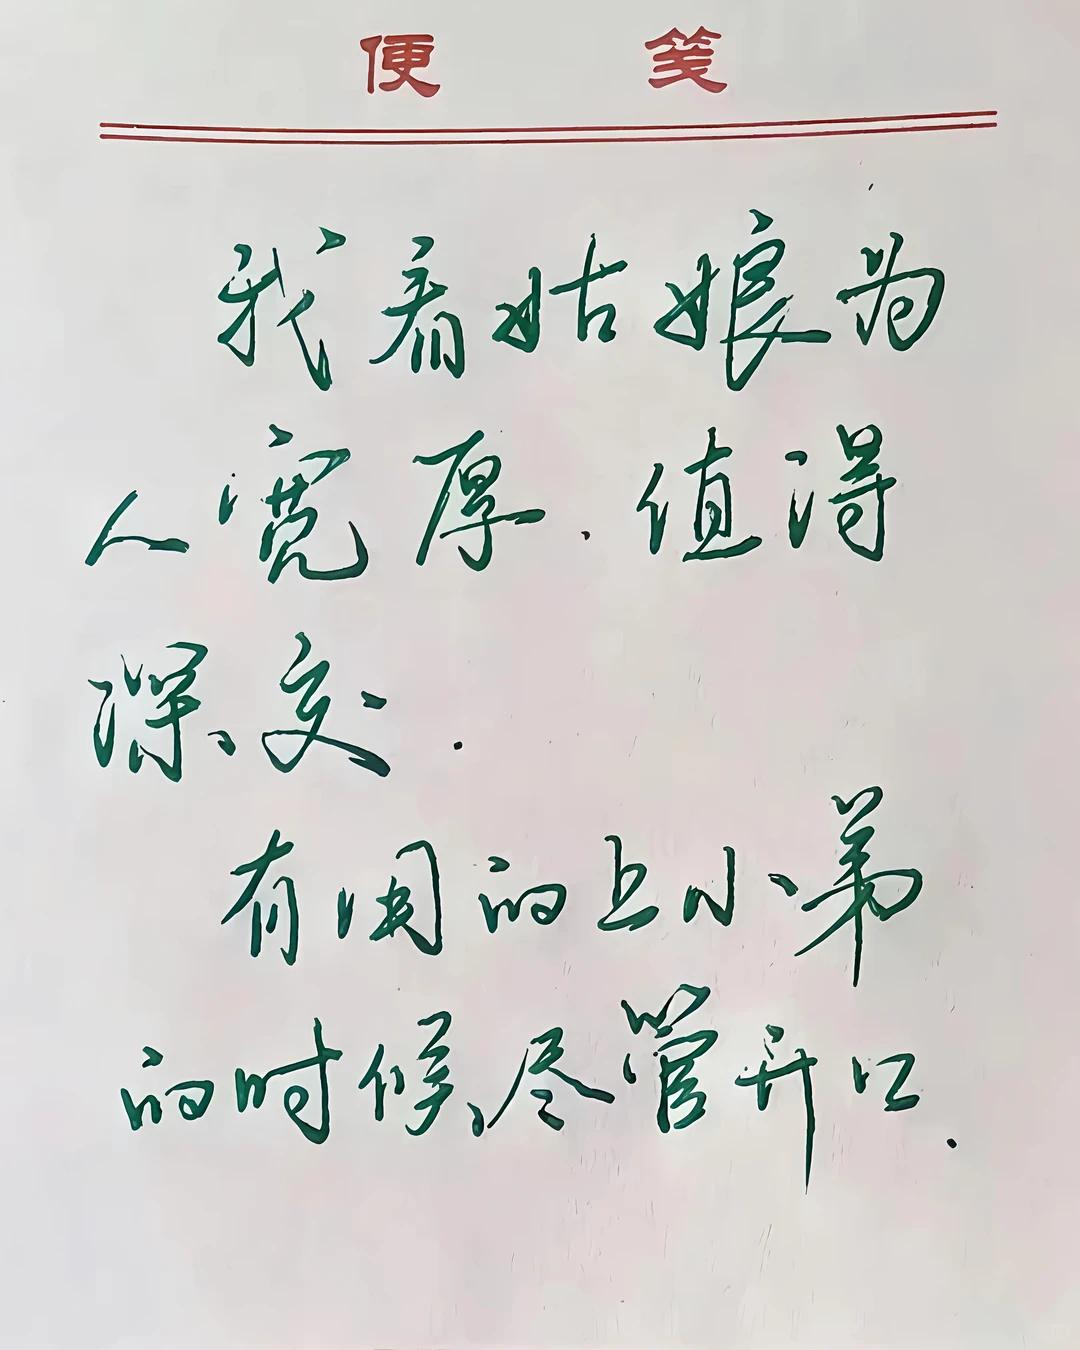 便笺
我看姑娘为
人宽厚.值得
深交.
有用的上小弟
的时候,尽管开口.